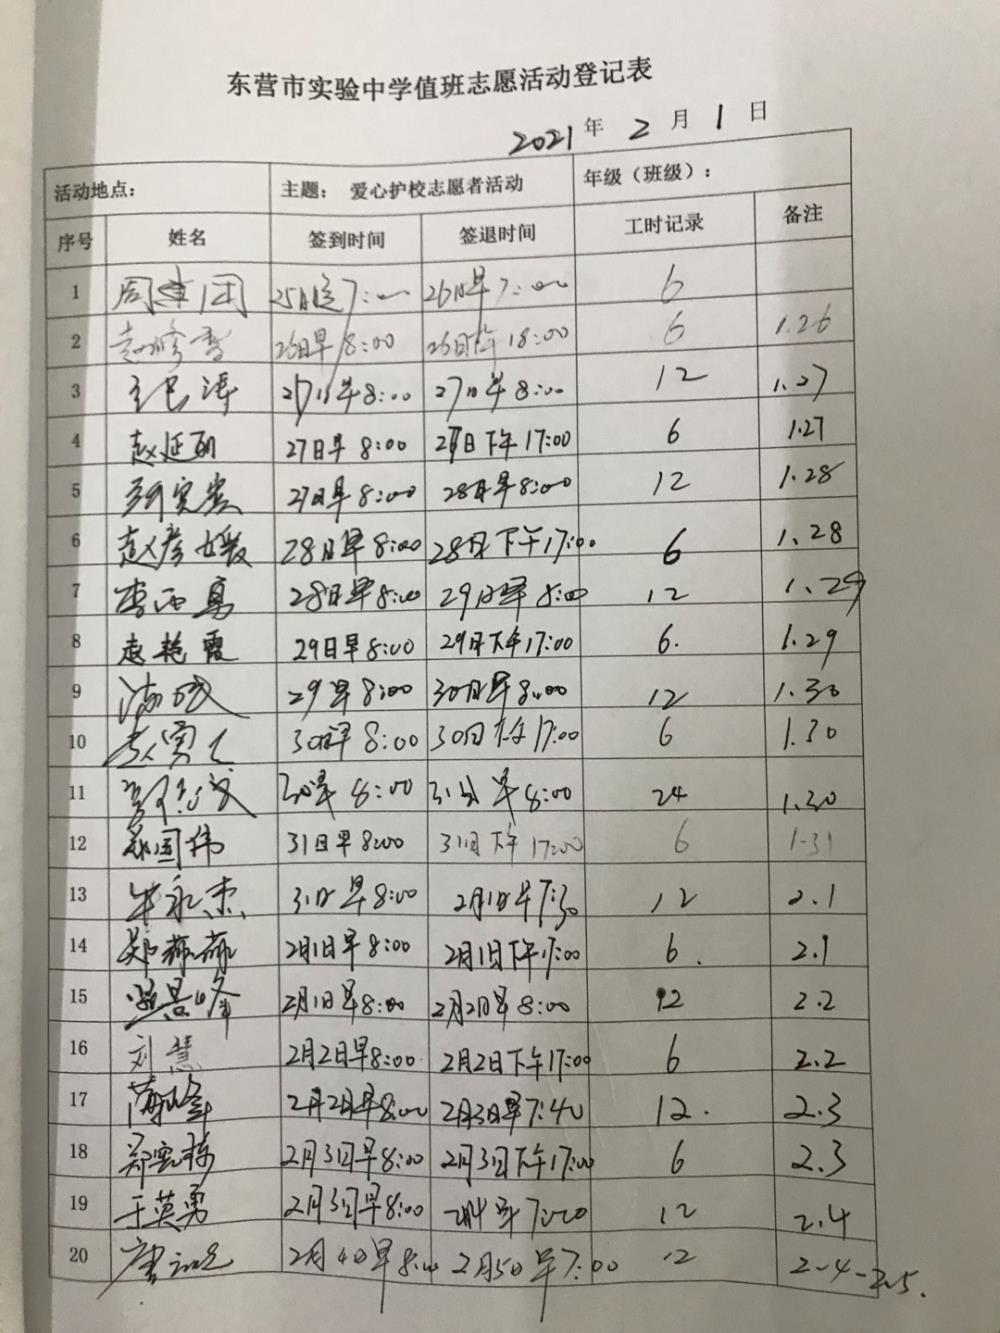 东营市实验中学值班志愿活动登记表
2021 年 2 月 1 日
活动地点： 主题： 爱心护校志愿者活动 年级（班级）：
序号 姓名 签到时间 签退时间 工时记录 备注
1 周建团 25日 7:00 26日早7:00 6
2 赵修香 26日早8:00 26日 18:00 6 1.26
3 27日早8:00 27日早8:00 12 1.27
4 赵延丽 27日早8:00 27日下午17:00 6 1.27
5 27日早8:00 28日早8:00 12 1.28
6 赵彦媛 28日早8:00 28日下午17:00 6 1.28
7 李西勇 28日早8:00 29日早8:00 12 1.29
8 赵艳霞 29日早8:00 29日下午17:00 6. 1.29
9 29早8:00 30日早8:00 12 1.30
10 30日早8:00 30日下午17:00 6 1.30
11 30早8:00 31日早8:00 24 1.30
12 郑国伟 31日早8:00 31日下午17:00 6 1-31
13 牛永杰 31日早8:00 2月1日早7:30 12 2.1
14 郑 2月1日早8:00 2月1日下午17:00 6. 2.1
15 景峰 2月1日早8:00 2月2日早8:00 12 2.2
16 刘慧 2月2日早8:00 2月2日下午17:00 6 2.2
17 2月2日早8:00 2月3日早7:40 12. 2.3
18 郑 2月3日早8:00 2月3日下午17:00 6 2.3
19 于英勇 2月3日早8:00 12 2.4
20 2月4日早8:00 2月5日早7:00 12 2-4-2.5.